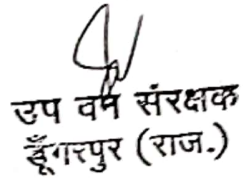 उप वन संरक्षक
डूँगरपुर (राज.)